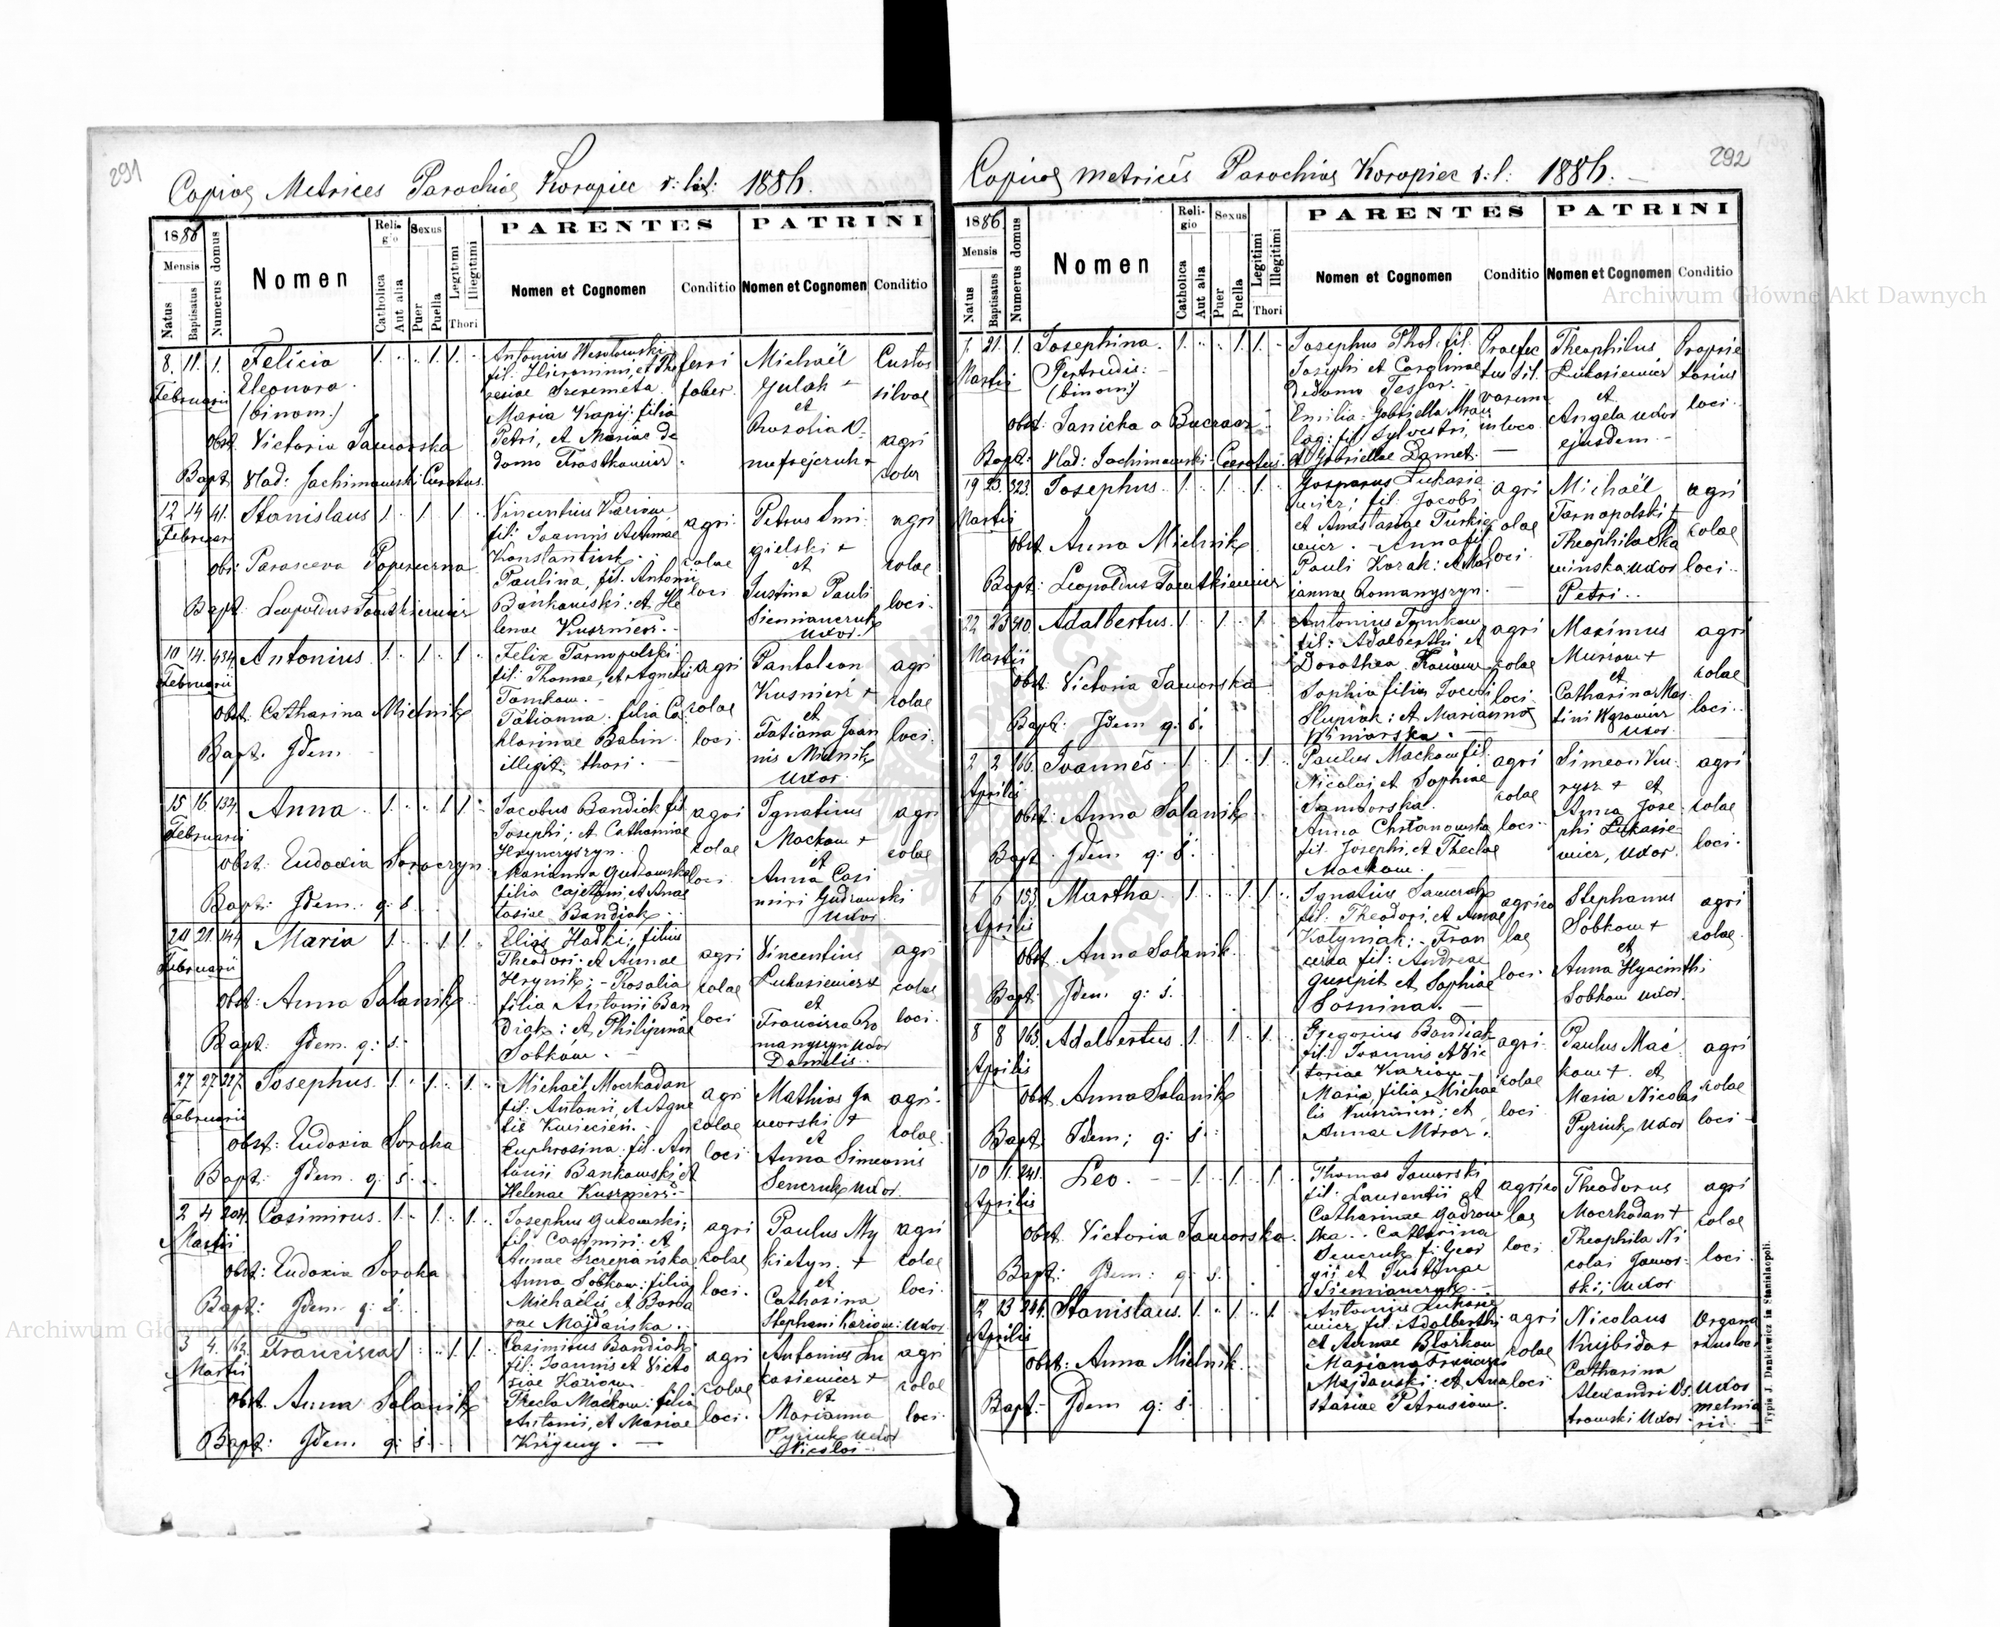 291
Copiae Metrices Parochiae Koropiec r: lat: 1886.
1886
Mensis
Natus
Baptisatus
Numerus domus
Nomen
Religio
Catholica
Aut alia
Sexus
Puer
Puella
Legitimi
Illegitimi
Thori
PARENTES
Nomen et Cognomen
Conditio
PATRINI
Nomen et Cognomen
Conditio
8. 11. 1. Felicia 1. 1. 1.
Februarii Eleonora
(binom.)
Obst. Victoria Jaworska
Bapt. Vlad: Jachimowski Curatus.
Antonius Wesołowski
fil. Hieronimi, et The
resiae Szeremeta.
Maria Krapij: filia
Petri, et Mariae de
domo
ferri
faber.
Michaël
Gulak +
et
Rosolia
Custos
silvae
agri
cola
12 14 41. Stanislaus 1 1 1
Februar
obs: Parasceva Popereczna
Bapt. Leopoldus
Vincentius Kariow
fil: Joannis et Annae
Konstantiuk.
Paulina, fil. Antonii
Bańkowski: et He
lenae Kusznierz.
agri
colae
loci
Petrus Smi
gielski +
et
Justina Pauli
Siemianczuk
uxor.
agri
colae
loci.
10 14. 434 Antonius 1. 1 1
Februarii
Obst. Catharina Mielnik
Bapt. Idem
Felix Tarnopolski
fil: Thomae, et Agnetis
Tomkow.
Tatianna. filia Ca
tharinae Babin
illegit. thori.
agri
colae
loci.
Pantaleon
Kusnierz +
et
Tatiana Joan
nis Mielnik
uxor.
agri
colae
loci.
15 16. 134 Anna 1. 1 1.
Februarii
Obst: Eudoxia Soroczyn
Bapt: Idem. q: s.
Jacobus Bandiak fil
Josephi; et Catharinae
Hrynczyszyn.
Marianna Gudzowska
filia Cajetani et Anas
tasiae Bandiak.
agri
colae
loci
Ignatius
Mackow +
et
Anna Casi
miri Gudzowski
uxor
agri
colae
20 21. 144 Maria 1. 1 1.
Februarii
Obst: Anna Salanik
Bapt: Idem. q: s.
Elias Hadki; filius
Theodori: et Annae
Hrynik; - Rosalia
filia Antonii Ban
diak: et Philipinae
Sobkow.
agri
colae
loci
Vincentius
Lukasiewicz +
et
Francisca Ro
manyszyn uxor
Danielis.
agri
colae
loci.
27 27. 227. Josephus. 1. 1. 1.
Februarii
Obst: Eudoxia Soroka
Bapt: Idem. q: s.
Michaël Moczkodan
fil: Antonii, et Agne
tis Kwiecien.
Euphrosina. fil. An
tonii Bankowski, et
Helenae Kusznierz.
agri
colae
loci
Mathias Ja
worski +
et
Anna Simeonis
Senczuk uxor.
agri.
colae.
2 4 204. Casimirus. 1. 1. 1.
Martii
Obst: Eudoxia Soroka
Bapt: Idem q: s.
Josephus Gutowski;
fil. Casimiri et
Annae Szczepańska
Anna Sobkow: filia
Michaëlis, et Barba
rae Majdańska.
agri
colae
loci.
Paulus My
kietyn. +
et
Catharina
Stephani Kariow: uxor
agri
colae
loci.
3 4. 162. Francisca 1 1. 1.
Martii
Obst. Anna Salanik
Bapt: Idem q: s.
Casimirus Bandiak
fil: Joannis et Victo
riae Kariow.
Thecla Mackow: filia
Antonii, et Mariae
agri
colae
loci.
Antonius Lu
kasiewicz +
et
Marianna
Pyriuk uxor
Nicolai
agri
colae
loci.
292
Copiae metrices Parochiae Koropiec r: l: 1886.
1886.
Mensis
Natus
Baptisatus
Numerus domus
Nomen
Religio
Catholica
Aut alia
Sexus
Puer
Puella
Legitimi
Illegitimi
Thori
PARENTES
Nomen et Cognomen
Conditio
PATRINI
Nomen et Cognomen
Conditio
21. 1. Josephina. 1. 1. 1.
Martii Gertrudis:
(binom:)
Obst. Janicka a Buczacz
Bapt: Vlad: Jachimowski Curatus.
Josephus Phol: fil.
Josephi et Carolinae
De domo Tessar.
Emilia: Gabriella
fil: Sylvestri,
et Gabrielae Damet.
Praefec
tus sil
varum
in loco.
Theophilus
Lukasiewicz
et
Angela uxor
ejusdem.
Proprie
tarius
loci
19 23. 323. Josephus. 1. 1. 1.
Martii
Obst. Anna Mielnik
Bapt: Leopoldus
Gasparus Lukasie
wicz; fil. Jacobi
et Anastasiae Turkie
wicz. - Anna fil:
Pauli Kozak: et Mar
iannae Romanyszyn.
agri
colae
loci.
Michaël
Tarnopolski +
Theophila Ska
wińska uxor
Petri.
agri
colae
loci.
22 23 310. Adalbertus. 1. 1. 1
Martii
Obst. Victoria Jaworska
Bapt. Idem q: s.
Antonius Tymkow
fil: Adalberthi et
Dorothea
Sophia filia Jacobi
Slupiak: et Marianna
Winiarska.
agri
colae
loci
Maximus
et
Catharina Mar
tini
uxor
agri
colae
loci.
2 2 166. Joannes. 1 1 1
Aprilis
Obst: Anna Salanik
Bapt. Idem q: s.
Paulus Mackow fil.
Nicolai et Sophiae
Samborska.
Anna Chrzanowska
fil. Josephi, et Theclae
Mackow.
agri
colae
loci.
Simeon Ku
rysz + et
Anna Jose
phi Lukasie
wicz, uxor.
agri
colae
loci.
6 6 153. Martha. 1. 1. 1.
Aprilis
Obst. Anna Salanik.
Bapt: Idem. q: s.
Ignatius
fil: Theodori, et Annae
Kotyniak: - Fran
cisca fil: Andreae
et Sophiae
Sosnina.
agrico
lae
loci
Stephanus
Sobkow +
et
Anna Hyacinthi
Sobkow uxor.
agri
colae.
8 8 163. Adalbertus. 1. 1. 1.
Aprilis
Obst. Anna Salanik
Bapt: Idem; q: s:
Gregorius Bandiak
fil. Joannis et Vic
toriae Kariow
Maria, filia Michae
lis Kusznierz; et
Annae Mroz.
agri
colae
loci
Paulus Mać
kow +. et
Maria Nicolai
Pyriuk uxor
agri
colae
loci
10 11. 241. Leo. 1. 1. 1.
Aprilis
Obst. Victoria Jaworska.
Bapt: Idem: q: s.
Thomas Jaworski
fil. Laurentii et
Catharinae Gudzow
ska. Catharina
Senczuk fi: Geor
gii et Justinae
Siemianczuk.
agrico
lae
loci
Theodorus
Moczkodan +
Theophila Ni
colai Jawor
ski; uxor
agri
colae
loci.
2 13 244. Stanislaus. 1. 1. 1
Aprilis
Obst: Anna Mielnik.
Bapt. Idem q: s.
Antonius Lukasie
wicz fil. Adalberthi
et Annae
Mariana Francisci
Majdanski: et Ana
stasiae Petrusiow.
agri
colae
loci
Nicolaus
Kujbida +
Catharina
Alexandri Os
trowski uxor
organa
rius loci
uxor
Typis J. Dankiewicz in Stanislaopoli.
Archiwum Główne Akt Dawnych
Archiwum Główne Akt Dawnych